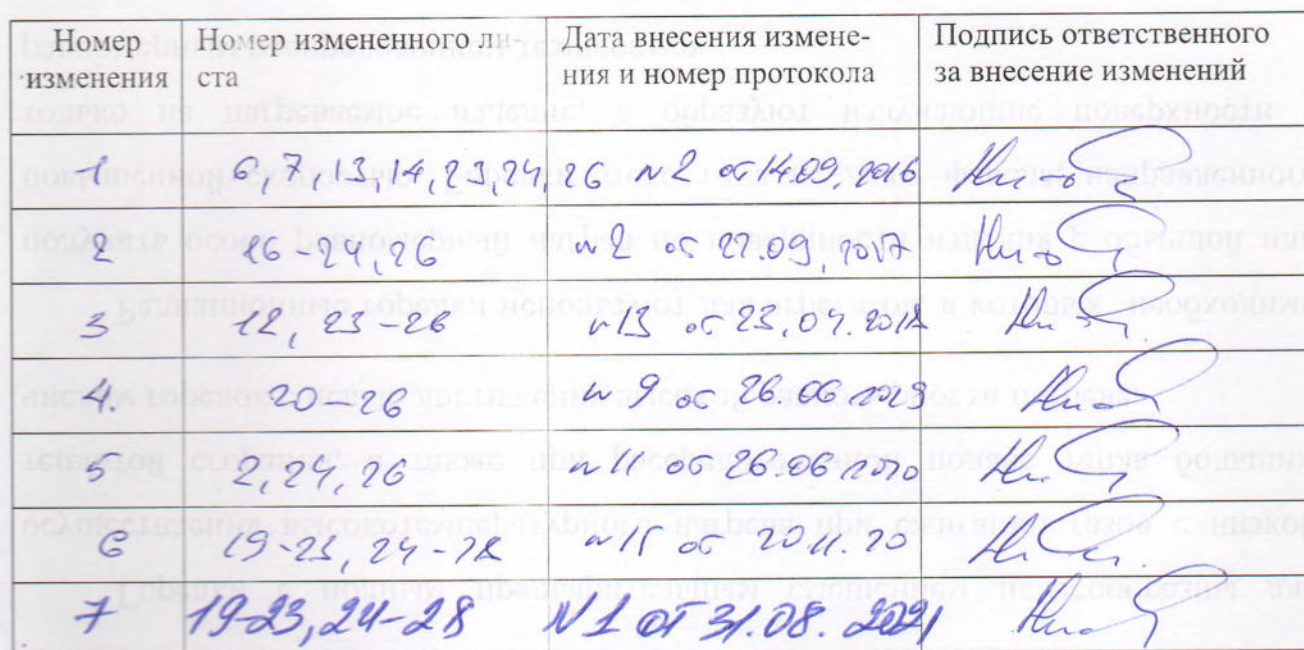 Номер изменения Номер измененного ли-ста Дата внесения измене-ния и номер протокола Подпись ответственного за внесение изменений
1 6, 7, 13, 14, 23, 24, 26 №2 от 14.09.2016
2 16-24, 26 №2 от 27.09.2017
3 12, 23-26 №13 от 23.04.2018
4. 20-26 №9 от 26.06.2019
5 2, 24, 26 №11 от 26.06.2020
6 19-23, 24-28 №11 от 20.11.20
7 19-23, 24-28 №1 от 31.08.2021